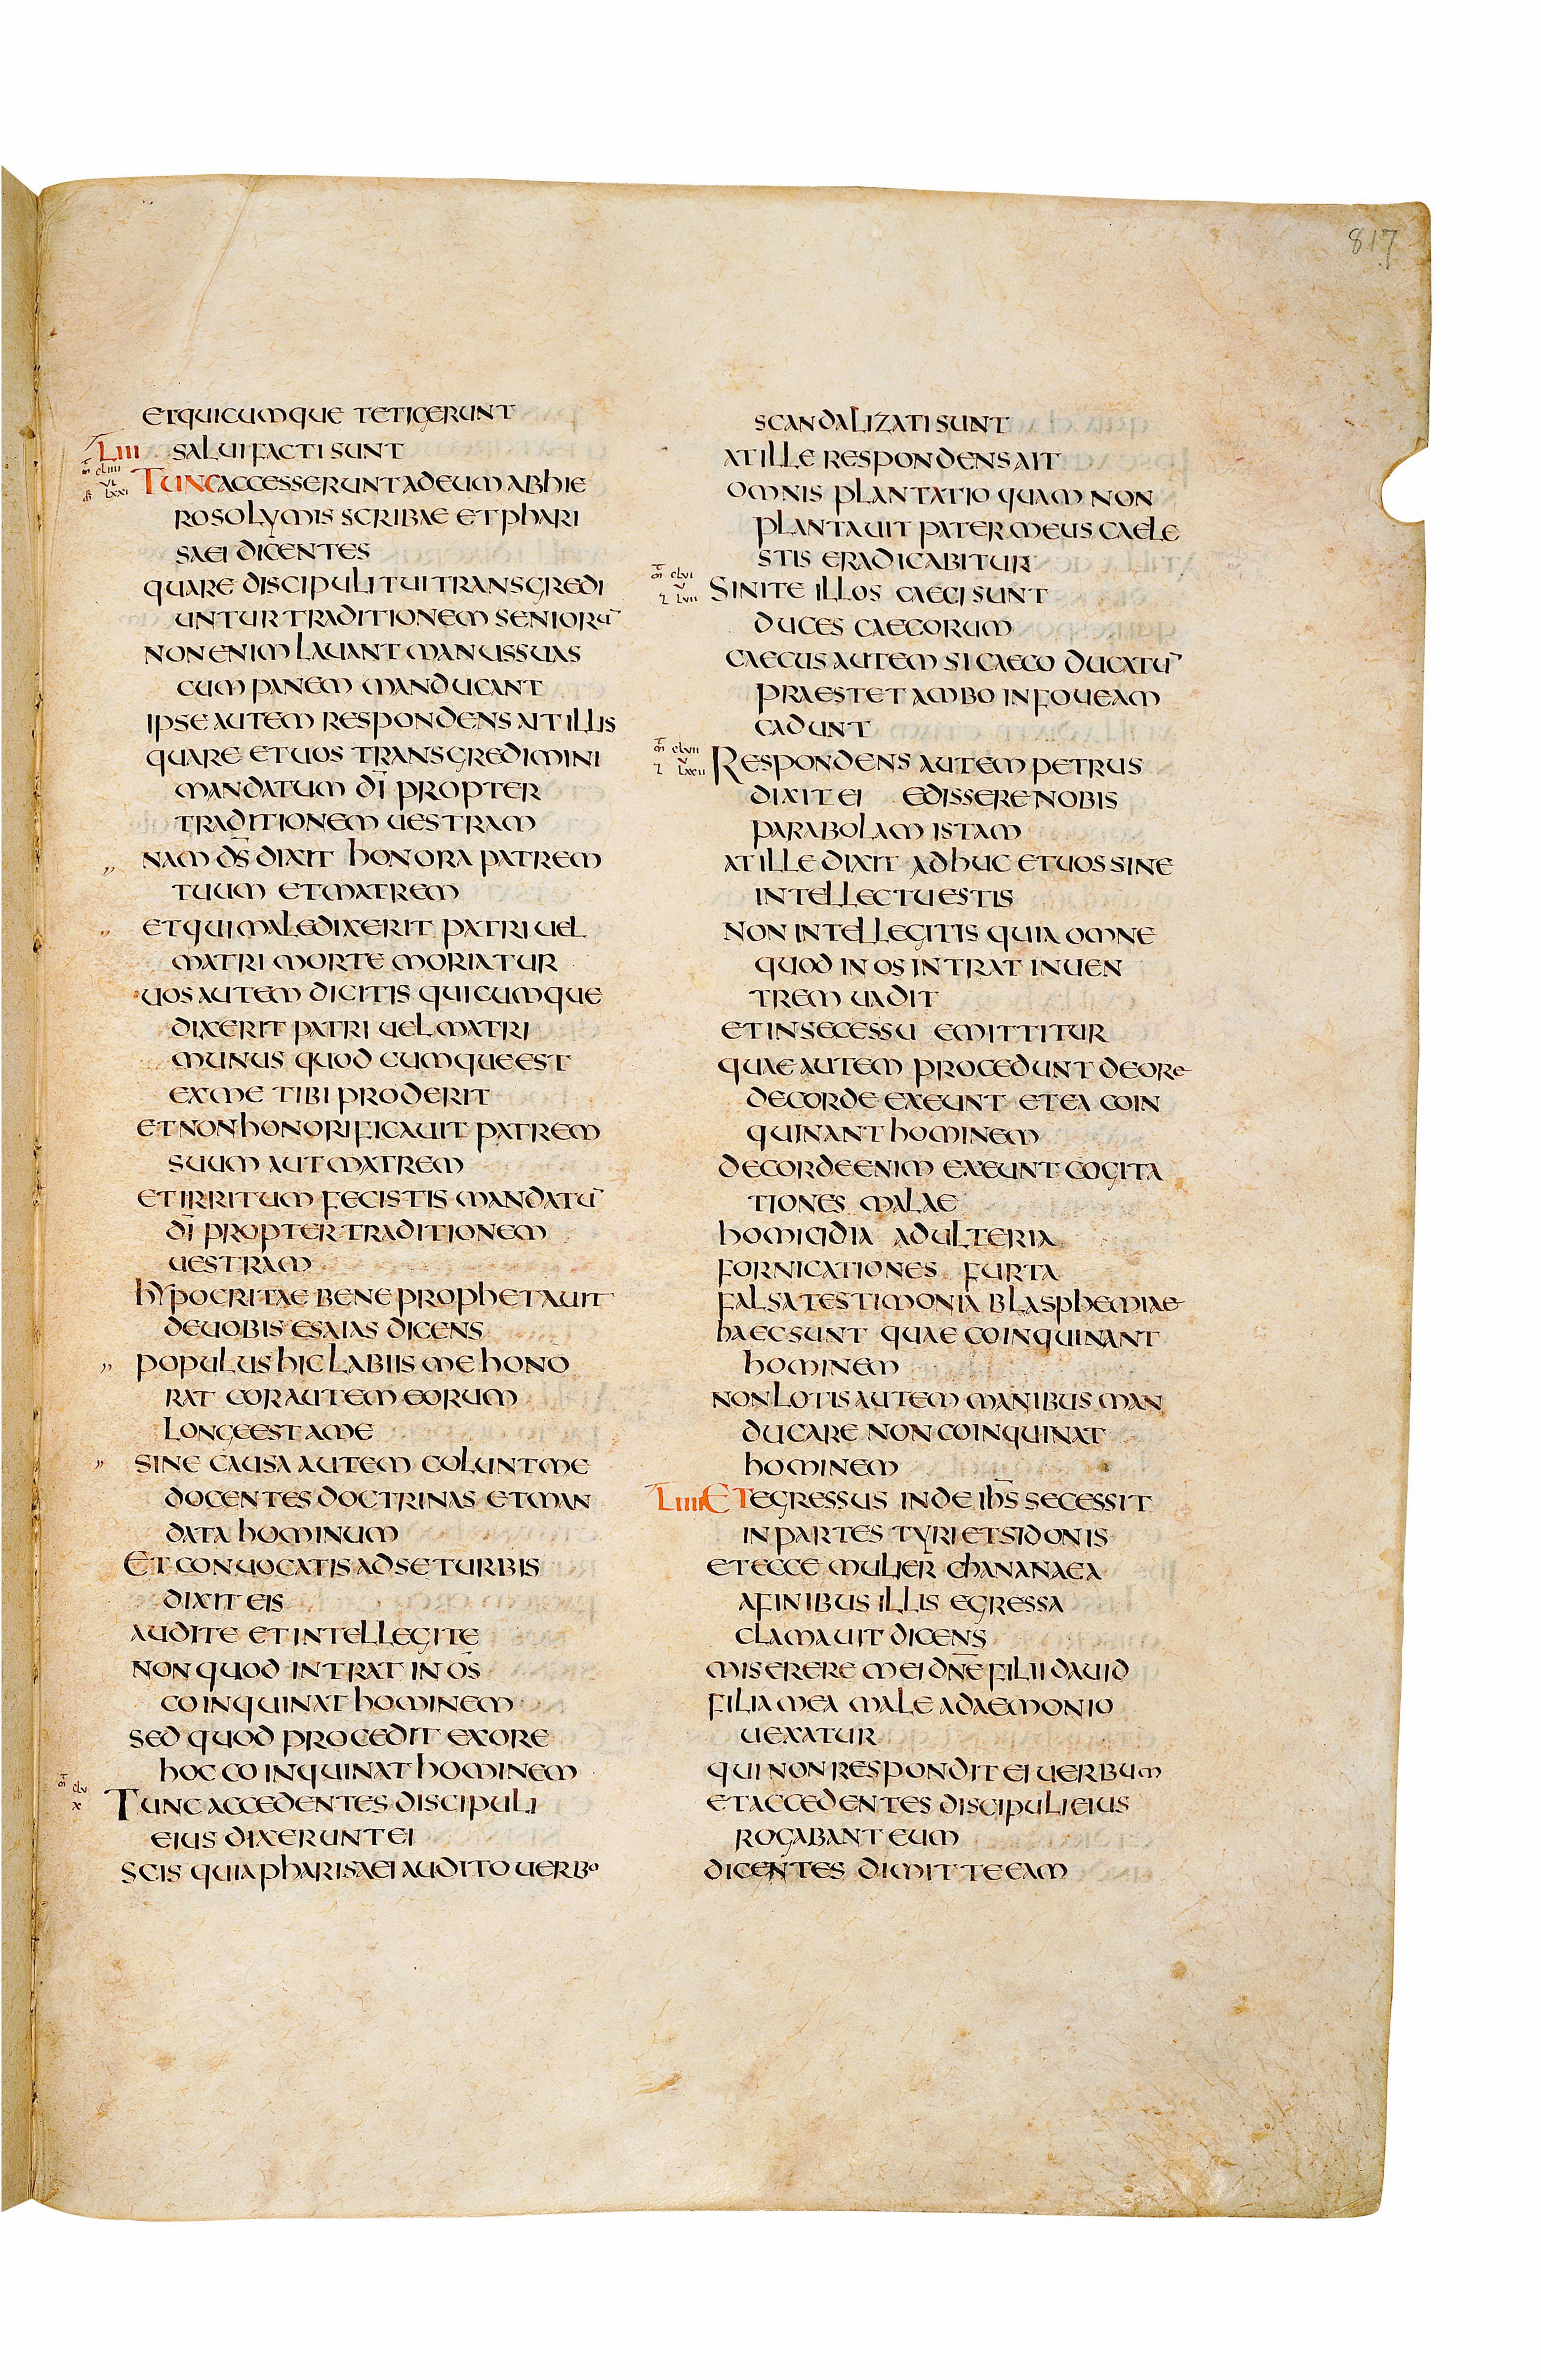 817
ETQUICUMQUE TETIGERUNT
LIII SALUI FACTI SUNT
m̄ cliiii
vi
m̄ lxxi
TUNC ACCESSERUNT AD EUM AB HIE
ROSOLYMIS SCRIBAE ET PHARI
SAEI DICENTES
QUARE DISCIPULI TUI TRANSGREDI
UNTUR TRADITIONEM SENIORŪ
NON ENIM LAUANT MANUS SUAS
CUM PANEM MANDUCANT
IPSE AUTEM RESPONDENS AIT ILLIS
QUARE ET UOS TRANSGREDIMINI
MANDATUM D̄I PROPTER
TRADITIONEM UESTRAM
NAM D̄S DIXIT HONORA PATREM
TUUM ET MATREM
ET QUI MALEDIXERIT PATRI UEL
MATRI MORTE MORIATUR
UOS AUTEM DICITIS QUICUMQUE
DIXERIT PATRI UEL MATRI
MUNUS QUOD CUMQUE EST
EX ME TIBI PRODERIT
ET NON HONORIFICAUIT PATREM
SUUM AUT MATREM
ET IRRITUM FECISTIS MANDATŪ
D̄I PROPTER TRADITIONEM
UESTRAM
HYPOCRITAE BENE PROPHETAUIT
DE UOBIS ESAIAS DICENS
POPULUS HIC LABIIS ME HONO
RAT COR AUTEM EORUM
LONGE EST A ME
SINE CAUSA AUTEM COLUNT ME
DOCENTES DOCTRINAS ET MAN
DATA HOMINUM
ET CONUOCATIS AD SE TURBIS
DIXIT EIS
AUDITE ET INTELLEGITE
NON QUOD INTRAT IN OS
COINQUINAT HOMINEM
SED QUOD PROCEDIT EX ORE
HOC COINQUINAT HOMINEM
m̄ clv
x
TUNC ACCEDENTES DISCIPULI
EIUS DIXERUNT EI
SCIS QUIA PHARISAEI AUDITO UERBO
SCANDALIZATI SUNT
AT ILLE RESPONDENS AIT
OMNIS PLANTATIO QUAM NON
PLANTAUIT PATER MEUS CAELE
STIS ERADICABITUR
m̄ clvi
v
l lvii
SINITE ILLOS CAECI SUNT
DUCES CAECORUM
CAECUS AUTEM SI CAECO DUCATŪ
PRAESTET AMBO IN FOUEAM
CADUNT
m̄ clvii
v
l lxxii
RESPONDENS AUTEM PETRUS
DIXIT EI EDISSERE NOBIS
PARABOLAM ISTAM
AT ILLE DIXIT ADHUC ET UOS SINE
INTELLECTU ESTIS
NON INTELLEGITIS QUIA OMNE
QUOD IN OS INTRAT IN UEN
TREM UADIT
ET IN SECESSU EMITTITUR
QUAE AUTEM PROCEDUNT DE ORE
DE CORDE EXEUNT ET EA COIN
QUINANT HOMINEM
DE CORDE ENIM EXEUNT COGITA
TIONES MALAE
HOMICIDIA ADULTERIA
FORNICATIONES FURTA
FALSA TESTIMONIA BLASPHEMIAE
HAEC SUNT QUAE COINQUINANT
HOMINEM
NON LOTIS AUTEM MANIBUS MAN
DUCARE NON COINQUINAT
HOMINEM
LIIII ET EGRESSUS INDE IH̄S SECESSIT
IN PARTES TYRI ET SIDONIS
ET ECCE MULIER CHANANAEA
A FINIBUS ILLIS EGRESSA
CLAMAUIT DICENS
MISERERE MEI DN̄E FILII DAUID
FILIA MEA MALE A DAEMONIO
UEXATUR
QUI NON RESPONDIT EI UERBUM
ET ACCEDENTES DISCIPULI EIUS
ROGABANT EUM
DICENTES DIMITTE EAM